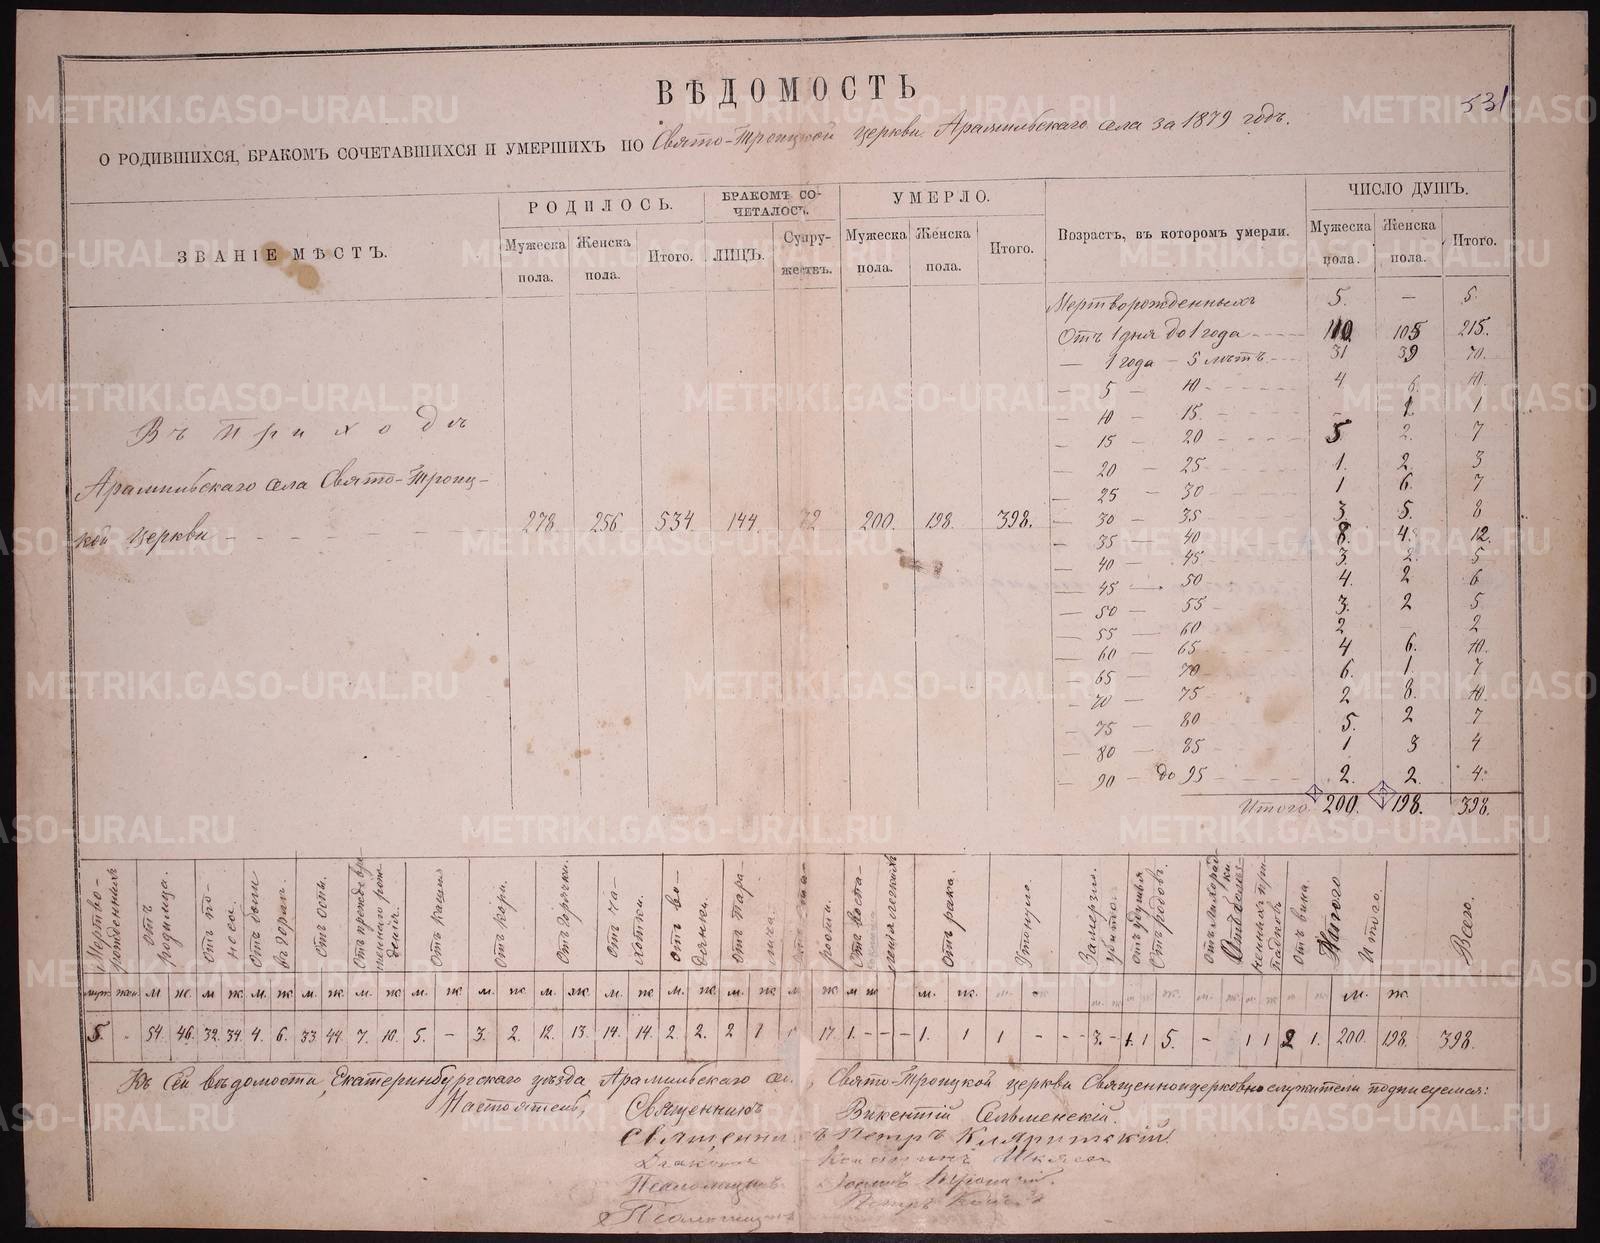 ВѢДОМОСТЬ
531
О РОДИВШИХСЯ, БРАКОМЪ СОЧЕТАВШИХСЯ И УМЕРШИХЪ ПО Свято-Троицкой церкви Арамильскаго села за 1879 годъ.
ЗВАНІЕ МѢСТЪ.
РОДИЛОСЬ.
Мужеска пола.
Женска пола.
Итого.
БРАКОМЪ СО-
ЧЕТАЛОСЬ.
ЛИЦЪ.
Супру-
жествъ.
УМЕРЛО.
Мужеска пола.
Женска пола.
Итого.
Возрастъ, въ которомъ умерли.
ЧИСЛО ДУШЪ.
Мужеска пола.
Женска пола.
Итого.
Въ Приходѣ
Арамильскаго села Свято-Троиц-
кой церкви 278. 256 534. 144. 72 200. 198. 398.
Мертворожденныхъ 5. — 5.
Отъ 1 дня до 1 года 110. 105 215.
— 1 года — 5 лѣтъ 31 39 70.
— 5 10 4 6. 10.
— 10 15. - 1. 1
— 15 20 5 2. 7
— 20 — 25 1. 2. 3
— 25 — 30 1 6. 7
— 30 — 35 3. 5. 8
— 35 — 40 8. 4. 12.
— 40 — 45 3. 2. 5
— 45 — 50 4. 2 6
— 50 — 55 3. 2 5
— 55 — 60 2 2
— 60 — 65 4 6. 10.
— 65 — 70 6. 1. 7
— 70 — 75 2 8. 10.
— 75 — 80 5. 2 7
— 80 — 85 1 3 4
— 90 — до 95 2. 2. 4.
Итого 200. 198. 398.
Мертво-
рожденныхъ
Отъ
родимца.
Отъ по-
носа.
Отъ боли
въ горлѣ.
Отъ оспы.
Отъ преждевре-
меннаго рож-
денія.
Отъ кашля
Отъ кори.
Отъ горячки.
Отъ ча-
хотки.
Отъ во-
дянки.
Отъ пара-
лича.
Отъ рака.
Утонуло.
Замерзло.
убито.
Отъ удушья
Отъ родовъ.
Отъ вина.
Итого.
Всего.
5. - 54. 46. 32. 34. 4. 6. 33. 44. 7. 10. 5. - 3. 2. 12. 13. 14. 14. 2. 2. 2 1 17. 1. - - - 1. 1 1 - - 3. - 1. 1 5. - 1 1 2 1. 200. 198. 398.
Къ сей вѣдомости, Екатеринбургскаго уѣзда Арамильскаго сел. Свято-Троицкой церкви Священноцерковнослужители подписуемся:
Настоятель, Священникъ Викентій Сельменскій.
Священникъ Петръ
Псаломщикъ
Псаломщикъ Петръ
METRIKI.GASO-URAL.RU